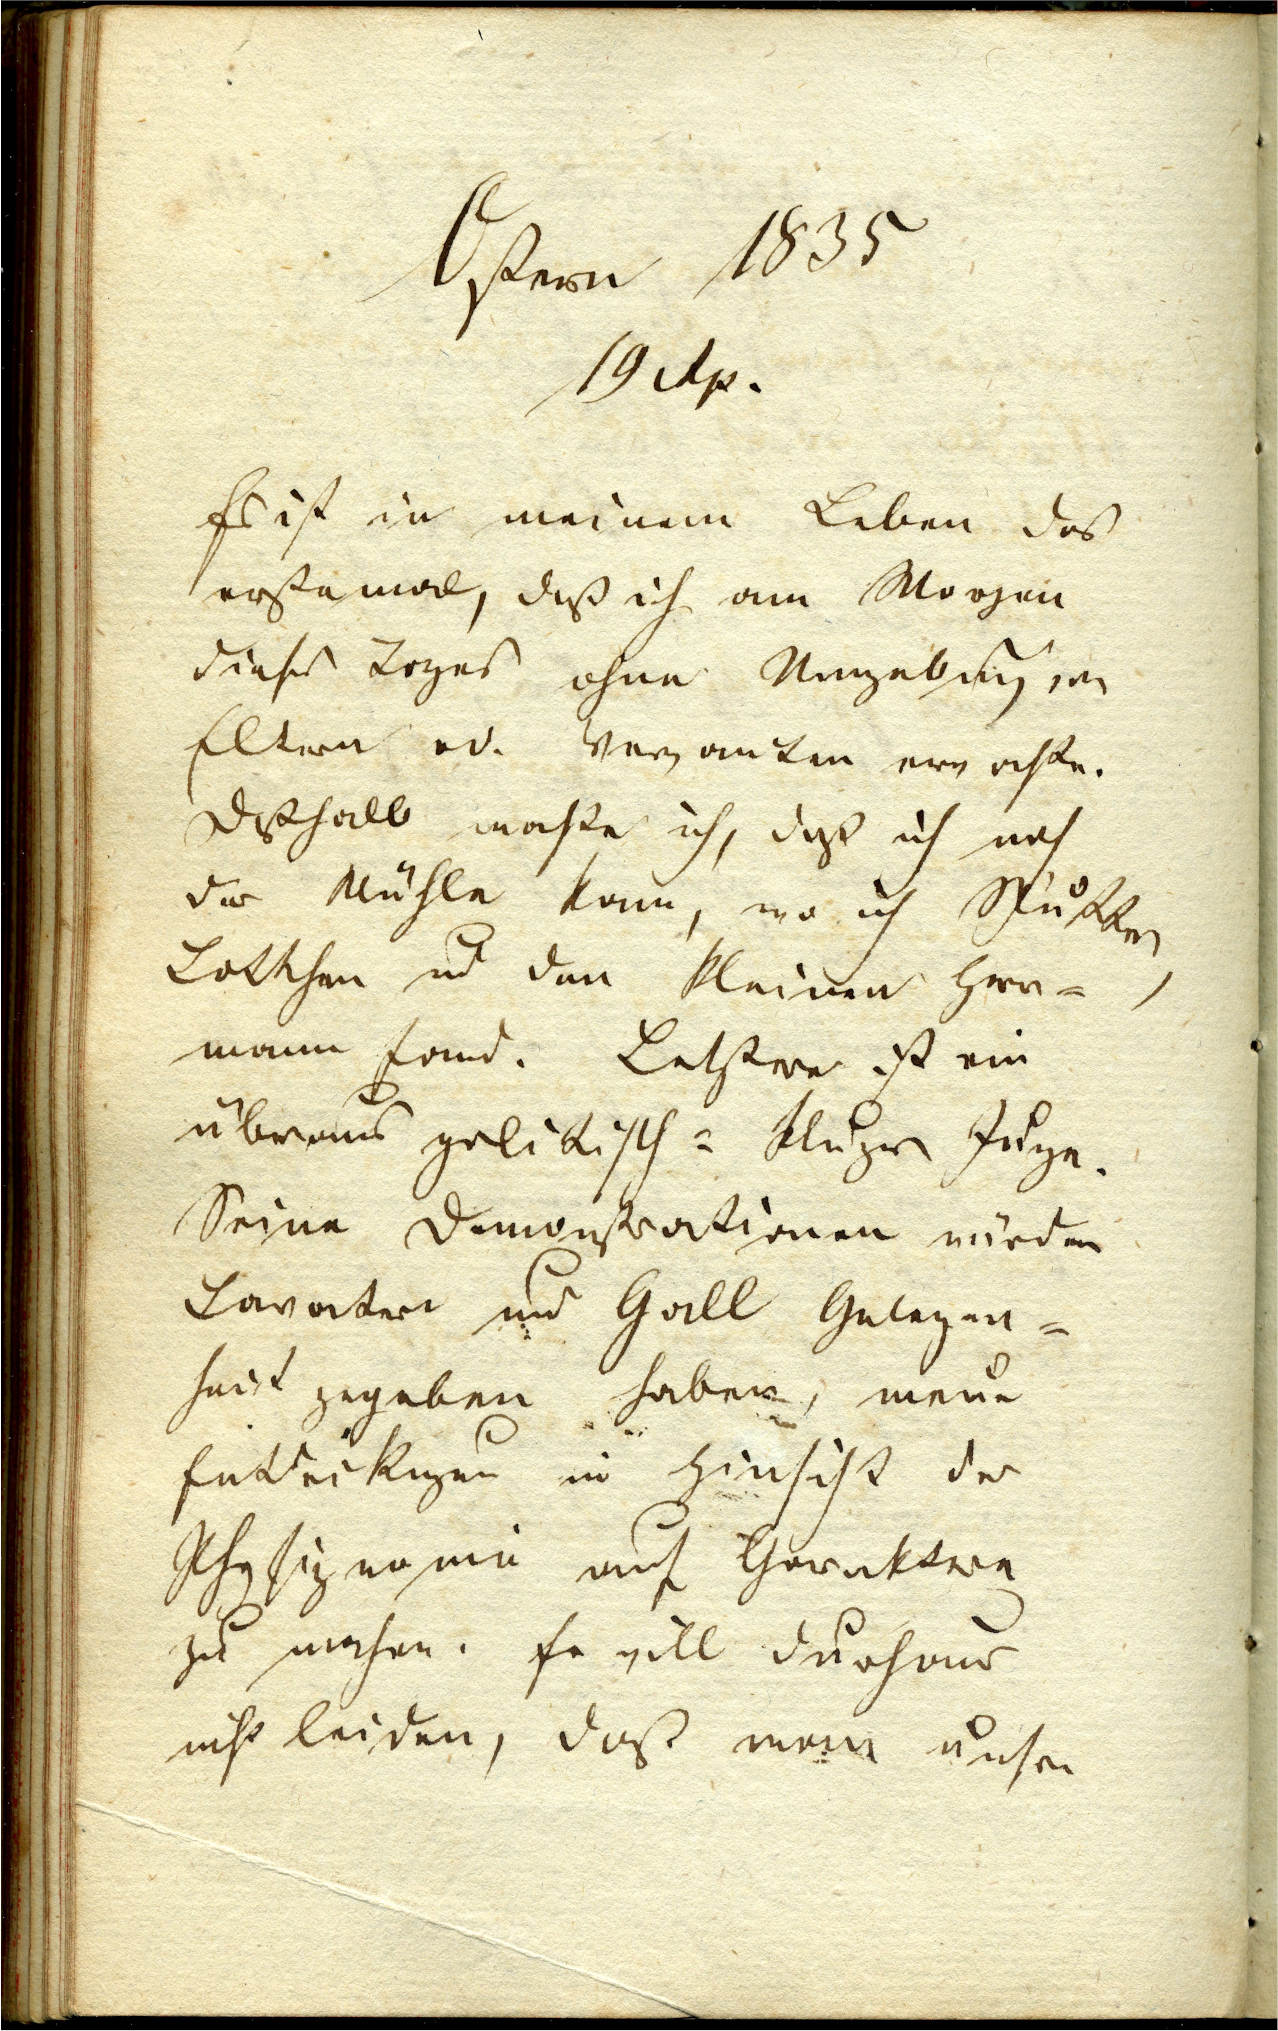 Ostern 1835
19 Ap.
Es ist in meinem Leben das
erstemal, daß ich am Morgen
dieses Tages ohne Umgebung von
Eltern od. Verwanten erwachte.
Deßhalb machte ich, daß ich nach
der Mühle kam, wo ich
Lottchen und den kleinen Herr=
mann fand. Letztrer ist ein
überaus politisch=kluger Junge.
Seine Demonstrationen würden
Lavatern und Gall Gelegen=
heit gegeben haben, neue
Entdeckungen in Hinsicht der
Physignomie auf Charaktere
zu machen. Er will durchaus
nicht leiden, daß man unsern